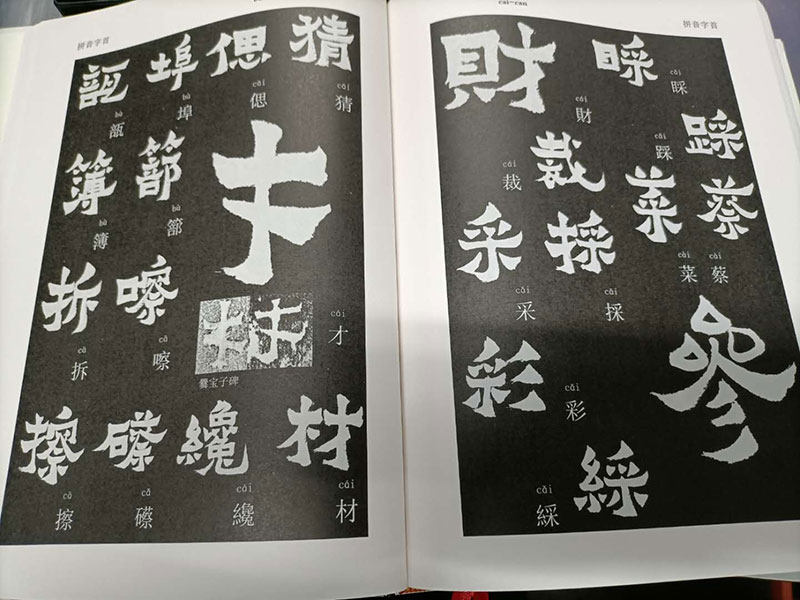 拼音字首
瓿 埠 偲 猜
bù 瓿
bù 埠
cāi 偲
cāi 猜
簿 篰 才
bù 簿
bù 篰
拆 嚓
cā 拆
cā 嚓
cái 才
爨宝子碑
擦 礤 纔 材
cā 擦
cǎ 礤
cái 纔
cái 材
cai—can
拼音字首
財 睬
cái 財
cǎi 睬
裁 踩
cái 裁
cǎi 踩
采 採 菜 蔡
cǎi 采
cǎi 採
cài 菜
cài 蔡
彩 參
cǎi 彩
綵
cǎi 綵